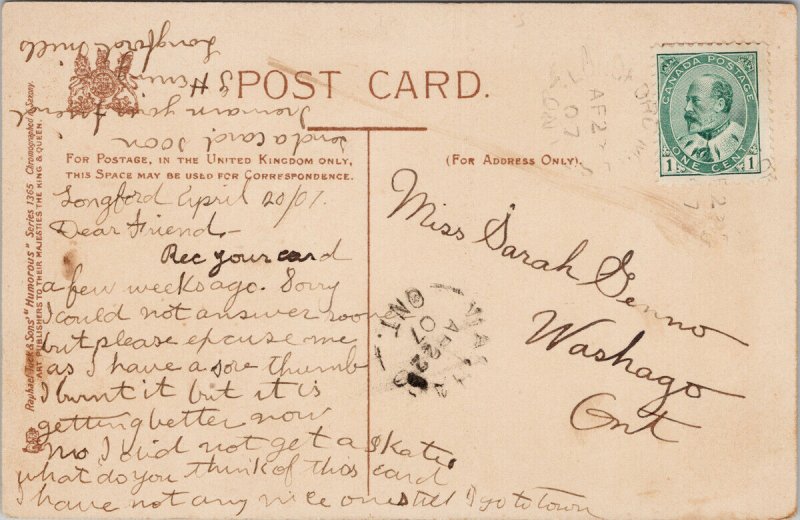 POST CARD.
FOR POSTAGE, IN THE UNITED KINGDOM ONLY,
THIS SPACE MAY BE USED FOR CORRESPONDENCE.
(FOR ADDRESS ONLY).
CANADA POSTAGE
1 ONE CENT 1
Longford April 20/07.
Dear Friend.
Rec your card
a few weeks ago. Sorry
I could not answer sooner
but please excuse me
as I have a sore thumb
I burnt it but it is
getting better now
no I did not get a skate
what do you think of this card
I have not any nice ones till I go to town
send a card soon
I remain your friend
H
Longford Mills
Miss Sarah Genno
Washago
Ont
WASHAGO
AP 22
07
ONT.
AP 22
07
ONT
Raphael Tuck & Sons' "Humorous" Series 1365 Chromographed in Saxony.
ART PUBLISHERS TO THEIR MAJESTIES THE KING & QUEEN.